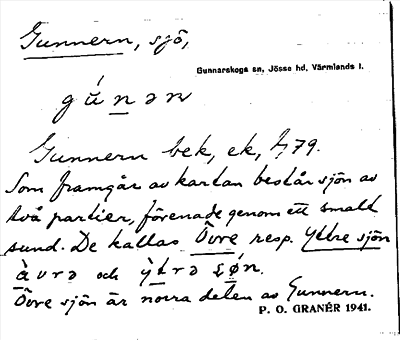 Gunnern, sjö,
Gunnarskogs sn, Jösse hd, Värmlands l.
gúnən
Gunnern bek, ek, 79.
Som framgår av kartan består sjön av
två partier, förenade genom ett smalt
sund. De kallas Övre resp. Yttre sjön
och
Övre sjön är norra delen av Gunnern.
P. O. GRANÉR 1941.